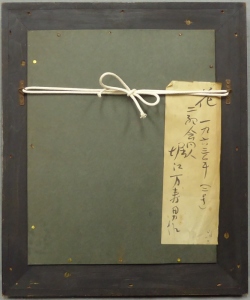 花 一九六三年
二紀会同人
堀江万寿男